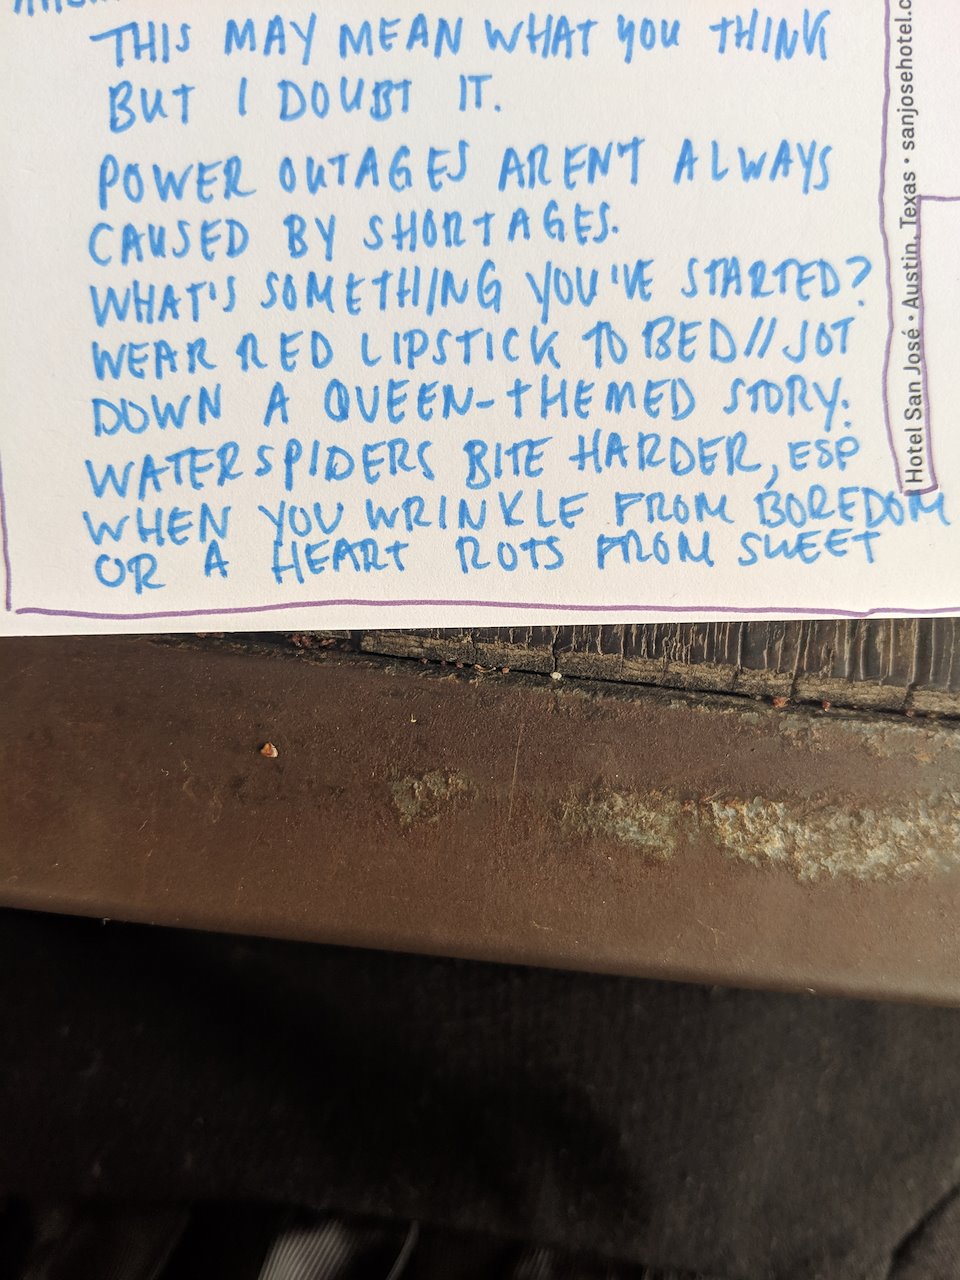 THIS MAY MEAN WHAT YOU THINK
BUT I DOUBT IT.
POWER OUTAGES AREN'T ALWAYS
CAUSED BY SHORTAGES.
WHAT'S SOMETHING YOU'VE STARTED?
WEAR RED LIPSTICK TO BED//JOT
DOWN A QUEEN-THEMED STORY.
WATER SPIDERS BITE HARDER, ESP
WHEN YOU WRINKLE FROM BOREDOM
OR A HEART ROTS FROM SWEET
Hotel San José • Austin, Texas • sanjosehotel.c